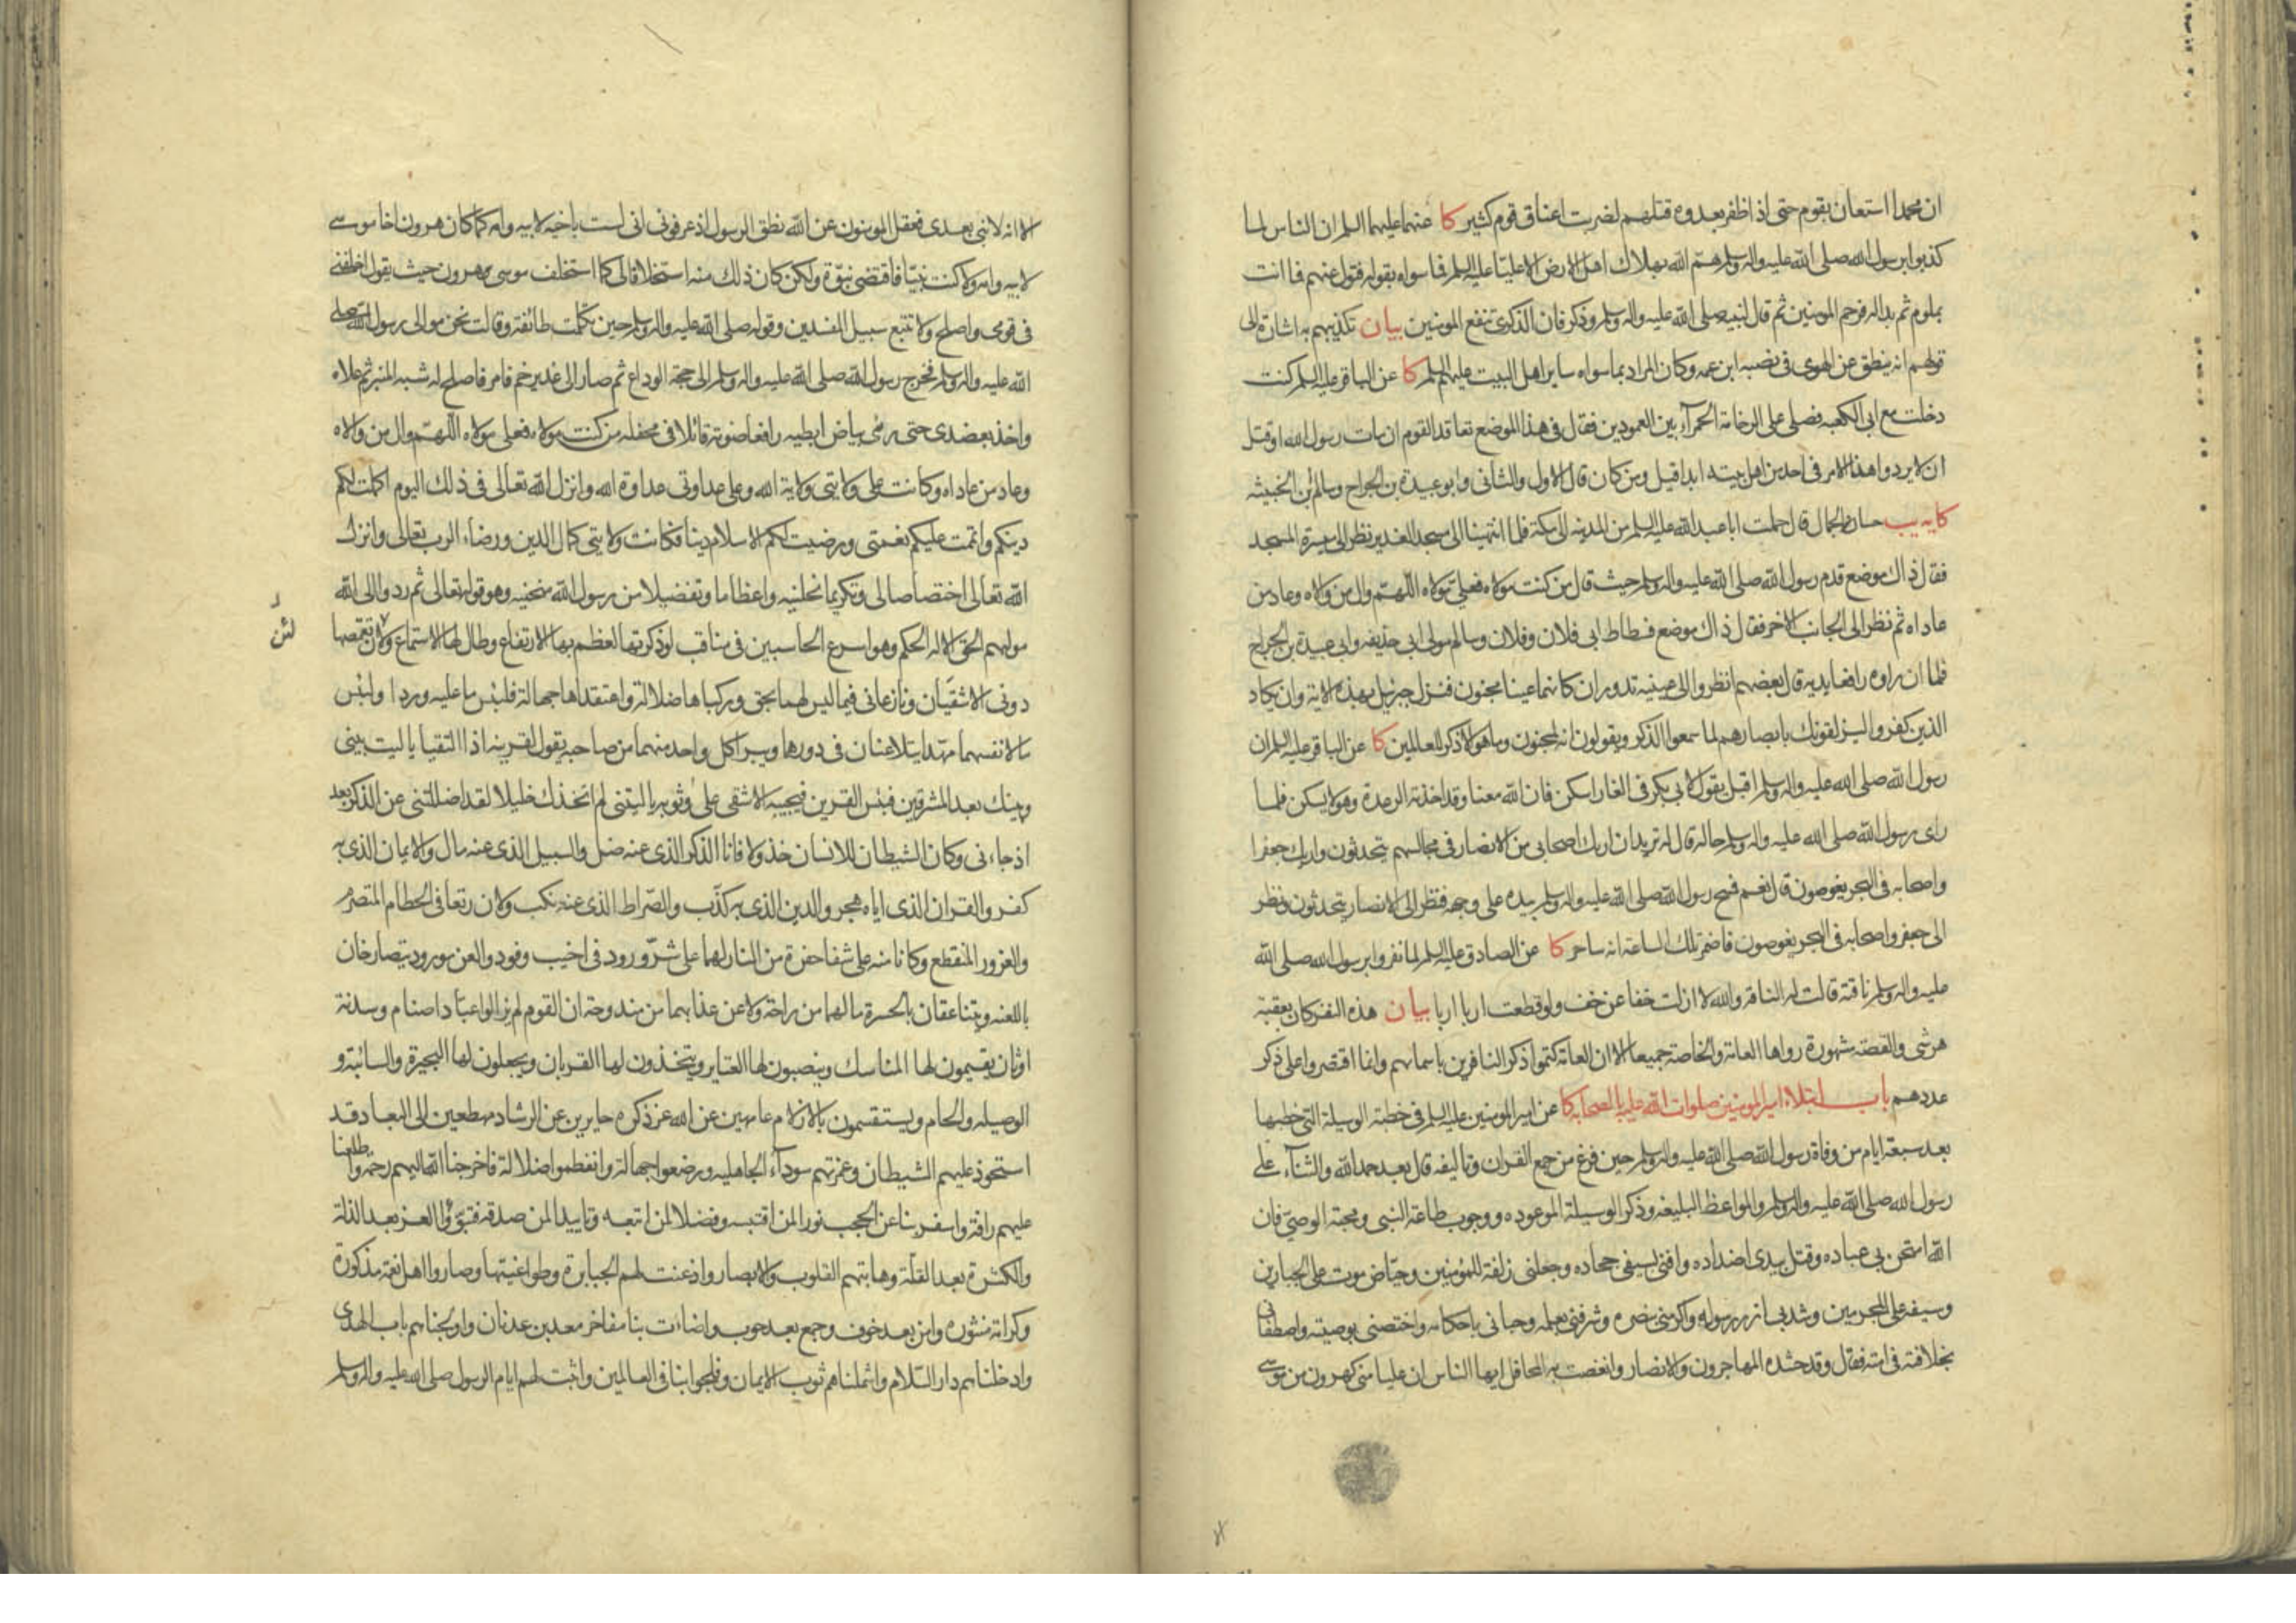 ان محمدا استعان بقوم حتى اذا ظفر بعدوه قتلهم لضربت اعناق قوم كثير كا عنهما عليهما السلم ان الناس لما
كذبوا برسول الله صلى الله عليه واله وسلم هم الله بهلاك اهل الارض الا عليّا عليه السلم فما سواه بقوله فتول عنهم فما انت
بملوم ثم بدا له فرحم المومنين ثم قال لنبيه صلى الله عليه واله وسلم وذكر فان الذكرى تنفع المومنين بيان تكذيبهم به اشارة الى
قولهم انه ينطق عن الهوى فى نصبه ابن عمه وكان المراد بما سواه ساير اهل البيت عليهم السلم كا عن الباقر عليه السلم كنت
دخلت مع ابى الكعبه فصلى على الرخامة الحمرآء بين العمودين فقال فى هذا الموضع تعاقد القوم ان مات رسول الله او قتل
ان لا يردوا هذا الامر فى احد من اهل بيته ابدا قيل ومن كان قال الاول والثانى وابو عبيدة بن الجراح وسالم بن الحبيبه
كا يه يب حسان الجمال قال حملت ابا عبد الله عليه السلم من المدينه الى مكة فلما انتهينا الى مسجد الغدير نظر الى ميسرة المسجد
فقال ذاك موضع قدم رسول الله صلى الله عليه واله وسلم حيث قال من كنت مولاه فعلي مولاه اللهم وال من والاه وعاد من
عاداه ثم نظر الى الجانب الاخر فقال ذاك موضع فسطاط ابى فلان وفلان وسالم مولى ابى حذيفه وابى عبيدة بن الجراح
فلما ان راوه رافعا يديه قال بعضهم انظروا الى عينيه تدوران كانهما عينا مجنون فنزل جبرئيل بهذه الاية وان يكاد
الذين كفروا ليزلقونك بابصارهم لما سمعوا الذكر ويقولون انه لمجنون وما هو الا ذكر للعالمين كا عن الباقر عليه السلم ان
رسول الله صلى الله عليه واله وسلم اقبل يقول لابى بكر فى الغار اسكن فان الله معنا وقد اخذته الرعدة وهو لا يسكن فلما
راى رسول الله صلى الله عليه واله وسلم حاله قال له تريد ان اريك اصحابى من الانصار فى مجالسهم يتحدثون واريك جعفرا
واصحابه فى البحر يغوصون قال نعم فمسح رسول الله صلى الله عليه واله وسلم بيده على وجهه فنظر الى الانصار يتحدثون ونظر
الى جعفر واصحابه فى البحر يغوصون فاضمر تلك الساعة انه ساحر كا عن الصادق عليه السلم لما نفروا برسول الله صلى الله
عليه واله وسلم ناقته قالت له الناقه والله لا ازلت خفا عن خف ولو قطعت اربا اربا بيان هذه النفر كان بعقبة
هرشى والقصة مشهورة رواها العامة والخاصة جميعا الا ان العامة كتموا ذكر النافرين باسمائهم وانما اقتصروا على ذكر
عددهم باب ابتلاء امير المومنين صلوات الله عليه بالصحابه كا عن امير المومنين عليه السلم فى خطبة الوسيلة التى خطبها
بعد سبعة ايام من وفاة رسول الله صلى الله عليه واله وسلم حين فرغ من جمع القران وتاليفه قال بعد حمد الله والثنآء على
رسول الله صلى الله عليه واله وسلم والمواعظ البليغه وذكر الوسيلة الموعوده ووجوب طاعة النبى ومحبة الوصىّ فان
الله امتحن بى عباده وقتل بيدى اضداده وافنى بسيفى جحاده وجعلنى زلفة للمؤمنين وحيّاض موت على الجبارين
وسيفه على المجرمين وشد بى ازر رسوله واكرمنى بنصره وشرفنى بعلمه وحبانى باحكامه واختصنى بوصيته واصطفانى
بخلافته فى امته فقال وقد حشده المهاجرون والانصار وانغصت بهم المحافل ايها الناس ان عليا منى كهرون من موسى
الا انه لا نبى بعدى فعقل المومنون عن الله نطق الرسول اذ عرفونى انى لست باخيه لابيه وامه كما كان هرون اخا موسى
لابيه وامه ولا كنت نبيّا فاقتضى نبوّة ولكن كان ذلك منه استخلافا لى كما استخلف موسى هرون حيث يقول اخلفنى
فى قومى واصلح ولا تتبع سبيل المفسدين وقوله صلى الله عليه واله وسلم حين تكلمت طائفة وقالت نحن موالى رسول الله صلى
الله عليه واله وسلم فخرج رسول الله صلى الله عليه واله وسلم الى حجة الوداع ثم صار الى غدير خم فامر فاصلح له شبه المنبر ثم علاه
واخذ بعضدى حتى رئى بياض ابطيه رافعا صوته قائلا فى محفله من كنت مولاه فعلى مولاه اللهم وال من والاه
وعاد من عاداه وكانت على ولايتى ولاية الله وعلى عداوتى عداوة الله وانزل الله تعالى فى ذلك اليوم اكملت لكم
دينكم واتممت عليكم نعمتى ورضيت لكم الاسلام دينا فكانت ولايتى كمال الدين ورضاء الرب تعالى وانزل
الله تعالى اختصاصا لى وتكريما نحلنيه واعظاما وتفضيلا من رسول الله منحنيه وهو قوله تعالى ثم ردوا الى الله
موليهم الحق الا له الحكم وهو اسرع الحاسبين فى مناقب لو ذكرتها لعظم بها الارتفاع وطال لها الاستماع ولان تقمصها
لئن
دونى الاشقيان ونازعانى فيما ليس لهما بحق وركباها ضلالة واعتقداها جهالة فلبئس ما عليه وردا ولبئس
ما لانفسهما مهدا يتلاعنان فى دورهما ويبرا كل واحد منهما من صاحبه يقول لقرينه اذا التقيا يا ليت بينى
وبينك بعد المشرقين فبئس القرين فيجيبه الاشقى على وثوبه يا ليتنى لم اتخذك خليلا لقد اضللتنى عن الذكر بعد
اذ جاءنى وكان الشيطان للانسان خذولا فانا الذكر الذى عنه ضل والسبيل الذى عنه مال والايمان الذى به
كفر والقران الذى اياه هجر والدين الذى به كذّب والصّراط الذى عنه نكب ولان رتعا فى الحطام المتصرم
والغرور المنقطع وكانا منه على شفا حفرة من النار لهما على شرّ ورود فى اخيب وفود والعن مورود يتصارخان
باللعنه ويتناعقان بالحسرة ما لهما من راحة ولا عن عذابهما من مندوحة ان القوم لم يزالوا عبّاد اصنام وسدنة
اوثان يقيمون لها المناسك وينصبون لها العتاير ويتخذون لها القربان ويجعلون لها البحيرة والسائبة و
الوصيله والحام ويستقسمون بالازلام عامهين عن الله عز ذكره حايرين عن الرشاد مهطعين الى البعاد قد
استحوذ عليهم الشيطان وغمرتهم سودآء الجاهليه ورضعوا جهالة وانفطموا ضلالة فاخرجنا الله اليهم رحمة واطلعنا
عليهم رافة واسفر بنا عن الحجب نورا لمن اقتبسه وفضلا لمن اتبعه وتاييدا لمن صدقه فتبوّؤا العز بعد الذلة
والكثرة بعد القلّة وهابتهم القلوب والابصار واذعنت لهم الجبابرة وطواغيتها وصاروا اهل نعمة مذكورة
وكرامة منثوره وامن بعد خوف وجمع بعد حوب واضاءت بنا مفاخر معد بن عدنان واولجناهم باب الهدى
وادخلناهم دار السّلام واشملناهم ثوب الايمان وفلجوا بنا فى العالمين واثبت لهم ايام الرسول صلى الله عليه واله وسلم